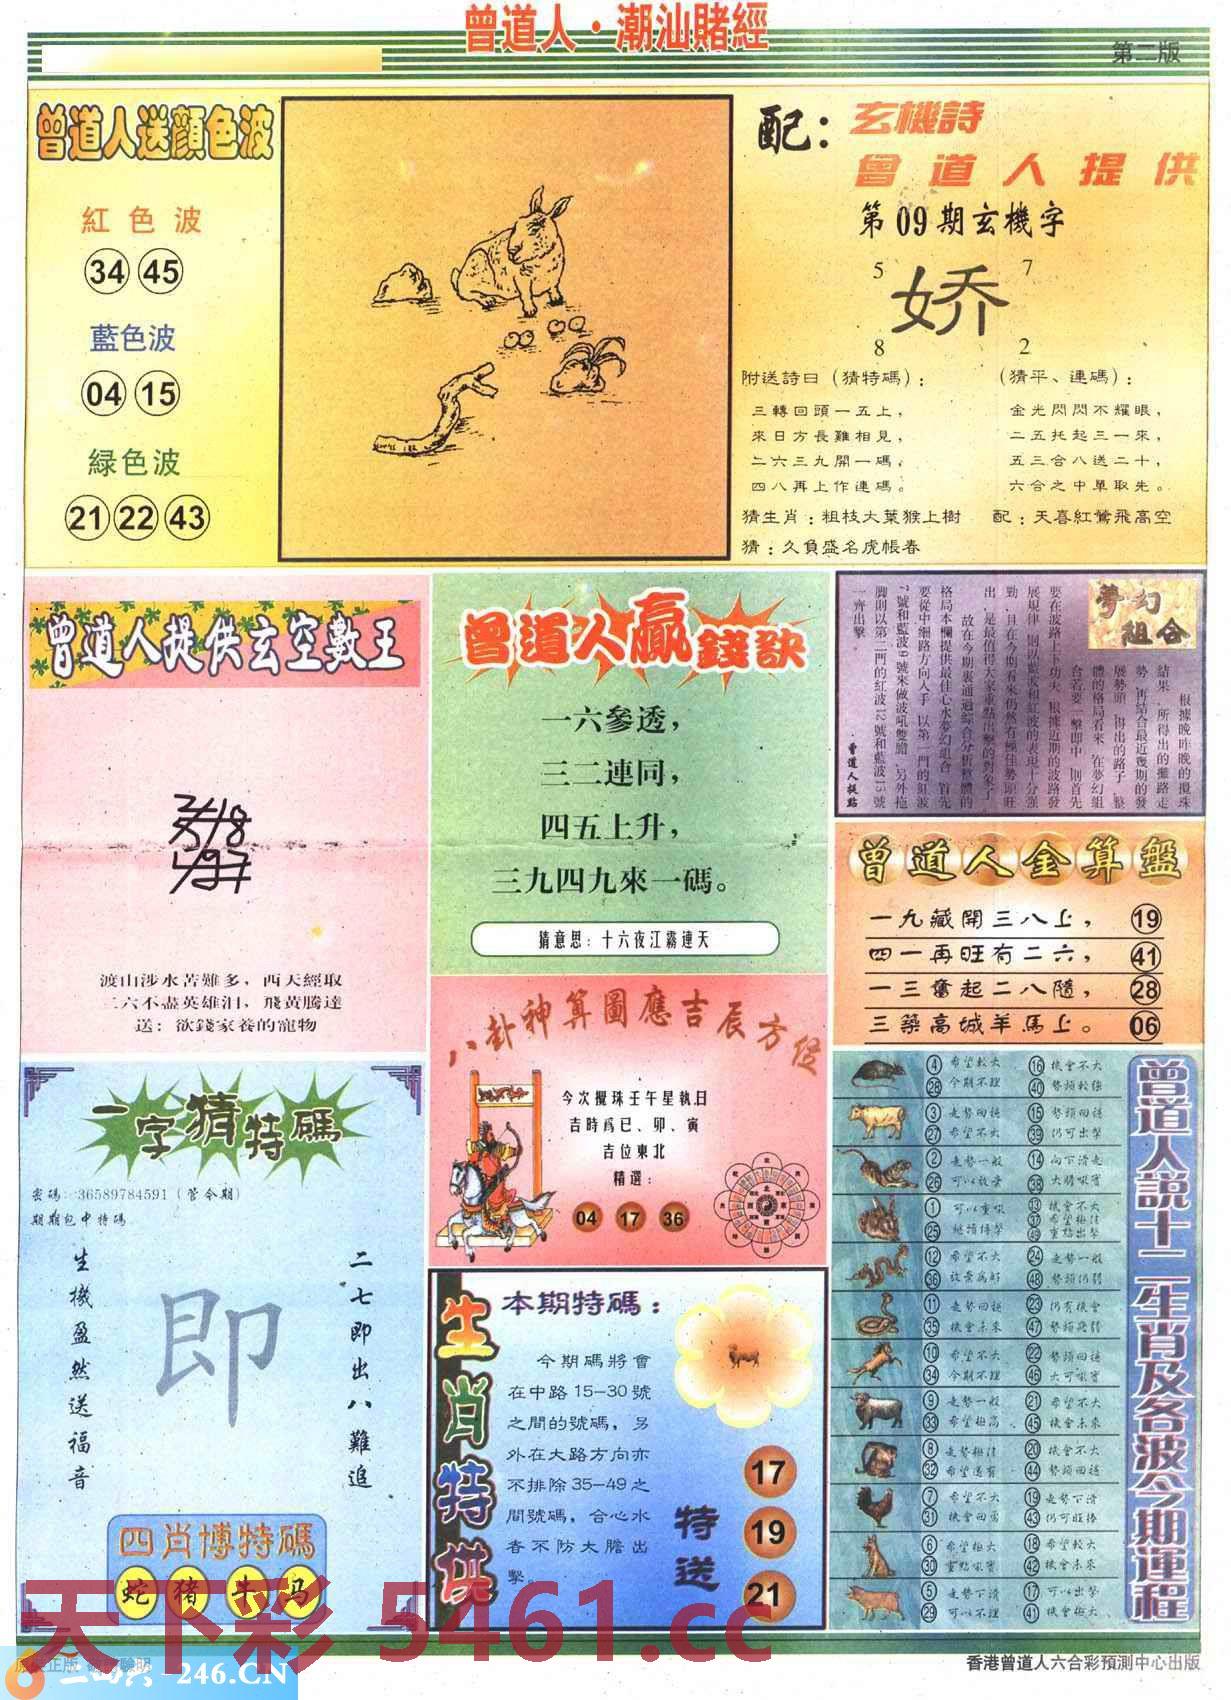 曾道人·潮汕賭經
第二版
曾道人送顔色波
紅色波
34 45
藍色波
04 15
緑色波
21 22 43
配：
玄機詩
曾道人提供
第09期玄機字
5 7
娇
8 2
附送詩曰（猜特碼）：
三轉回頭一五上，
來日方長難相見，
二六三九開一碼，
四八再上作連碼。
（猜平、連碼）：
金光閃閃不耀眼，
二五托起三一來，
五三合八送二十，
六合之中單取先。
猜生肖：粗枝大葉猴上樹
配：天喜紅鶯飛高空
猜：久負盛名虎帳春
曾道人提供玄空數王
渡山涉水苦難多，西天經取
二六不盡英雄泪，飛黄騰達
送：欲錢家養的寵物
曾道人贏錢訣
一六參透，
三二連同，
四五上升，
三九四九來一碼。
猜意思：十六夜江霧連天
夢幻組合
根據晚昨晚的攪珠
結果，所得出的攤路走
勢，再結合最近幾期的發
展勢頭，得出的路子，整
體的格局看來，在夢幻組
合若要一擊即中，則首先
要在波路上下功夫，根據近期的波路發
展規律，則以藍波和紅波的表現十分强
勁，且在今期看來仍然有極佳勢頭旺
出，是最值得大家重點出擊的對象了。
故在今期裏通過綜合分析整體的
格局本欄提供最佳心水夢幻組合，首先
要從中細路方向入手，以第一門的紅波
7號和藍波9號來做波吼雙膽，另外拖
脚則以第二門的紅波12號和藍波15號
一齊出擊。
曾道人提點
曾道人金算盤
一九藏開三八上， 19
四一再旺有二六， 41
一三奮起二八隨， 28
三築高城羊馬上。 06
八卦神算圖應吉辰方位
今次攪珠壬午星執日
吉時爲巳、卯、寅
吉位東北
精選：
04 17 36
一字猜特碼
密碼：36589784591（管令期）
期期包中特碼
生機盈然送福音
即
二七即出八難追
四肖博特碼
蛇 猪 牛 马
生肖特供
本期特碼：
今期碼將會
在中路15-30號
之間的號碼，另
外在大路方向亦
不排除35-49之
間號碼，合心水
者不防大膽出
擊。
特送
17
19
21
曾道人説十二生肖及各波今期運程
4 希望較大 16 機會不大
28 今期不理 40 勢頭較強
3 走勢回穩 15 勢頭回穩
27 希望不大 39 仍可出擊
2 走勢一般 14 向下滑走
26 可以放棄 38 大膽吼實
1 可以重吼 13 機會不大
25 37 希望極佳
49 重點出擊
12 希望不大 24 走勢一般
36 放棄爲好 48 勢頭仍弱
11 走勢回穩 23 仍有機會
35 機會未來 47 勢頭疲弱
10 希望不大 22 勢頭回穩
34 今期不理 46 大可吼實
9 走勢一般 21 希望不大
33 希望極高 45 機會未來
8 走勢極佳 20 機會不大
32 希望還有 44 勢頭回穩
7 希望不大 19 走勢下滑
31 機會回富 43 仍可旺捧
6 希望極大 18 希望較大
30 重點吼實 42 機會未來
5 走勢下滑 17 可以出擊
29 可以不理 41 機會極大
天下彩 5461.cc
246.CN
香港曾道人六合彩預測中心出版